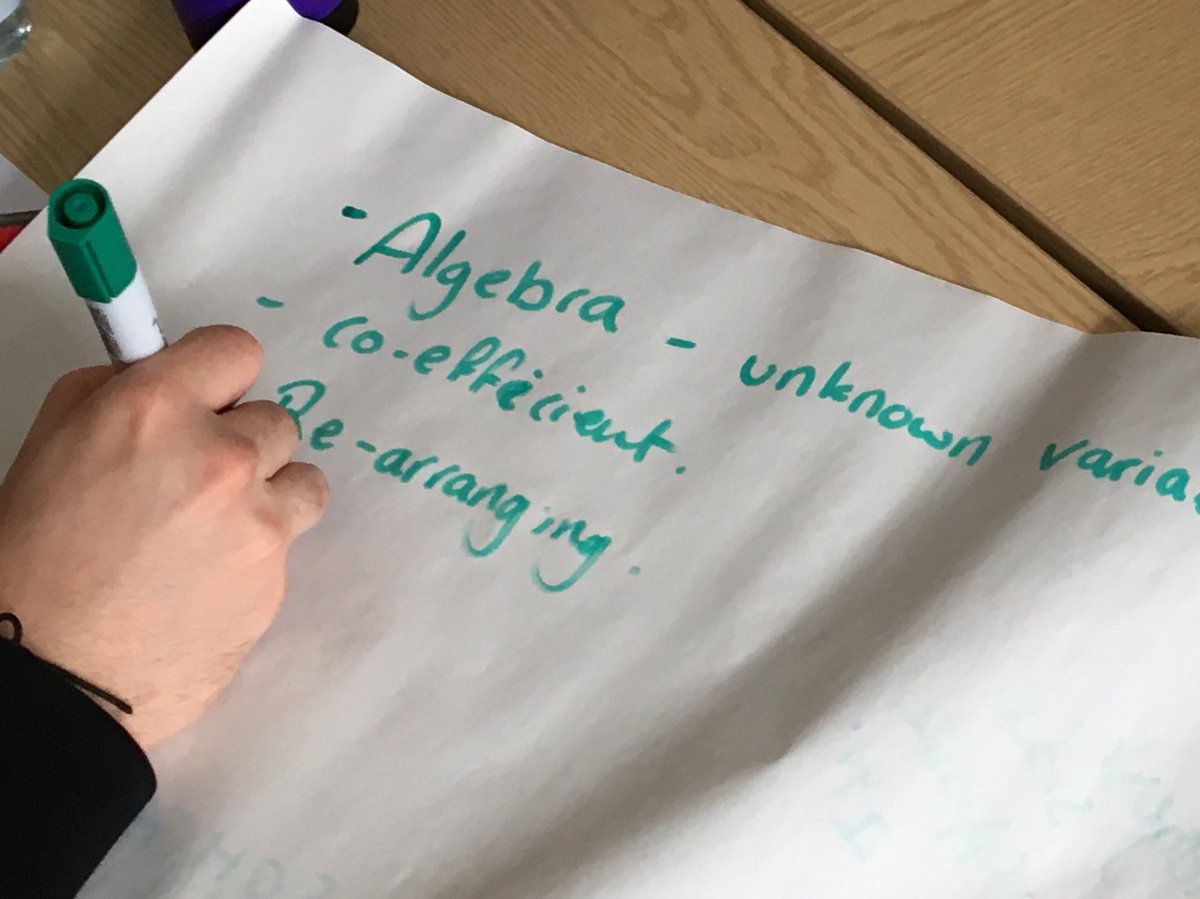 - Algebra - unknown
- co-efficient.
Re-arranging.